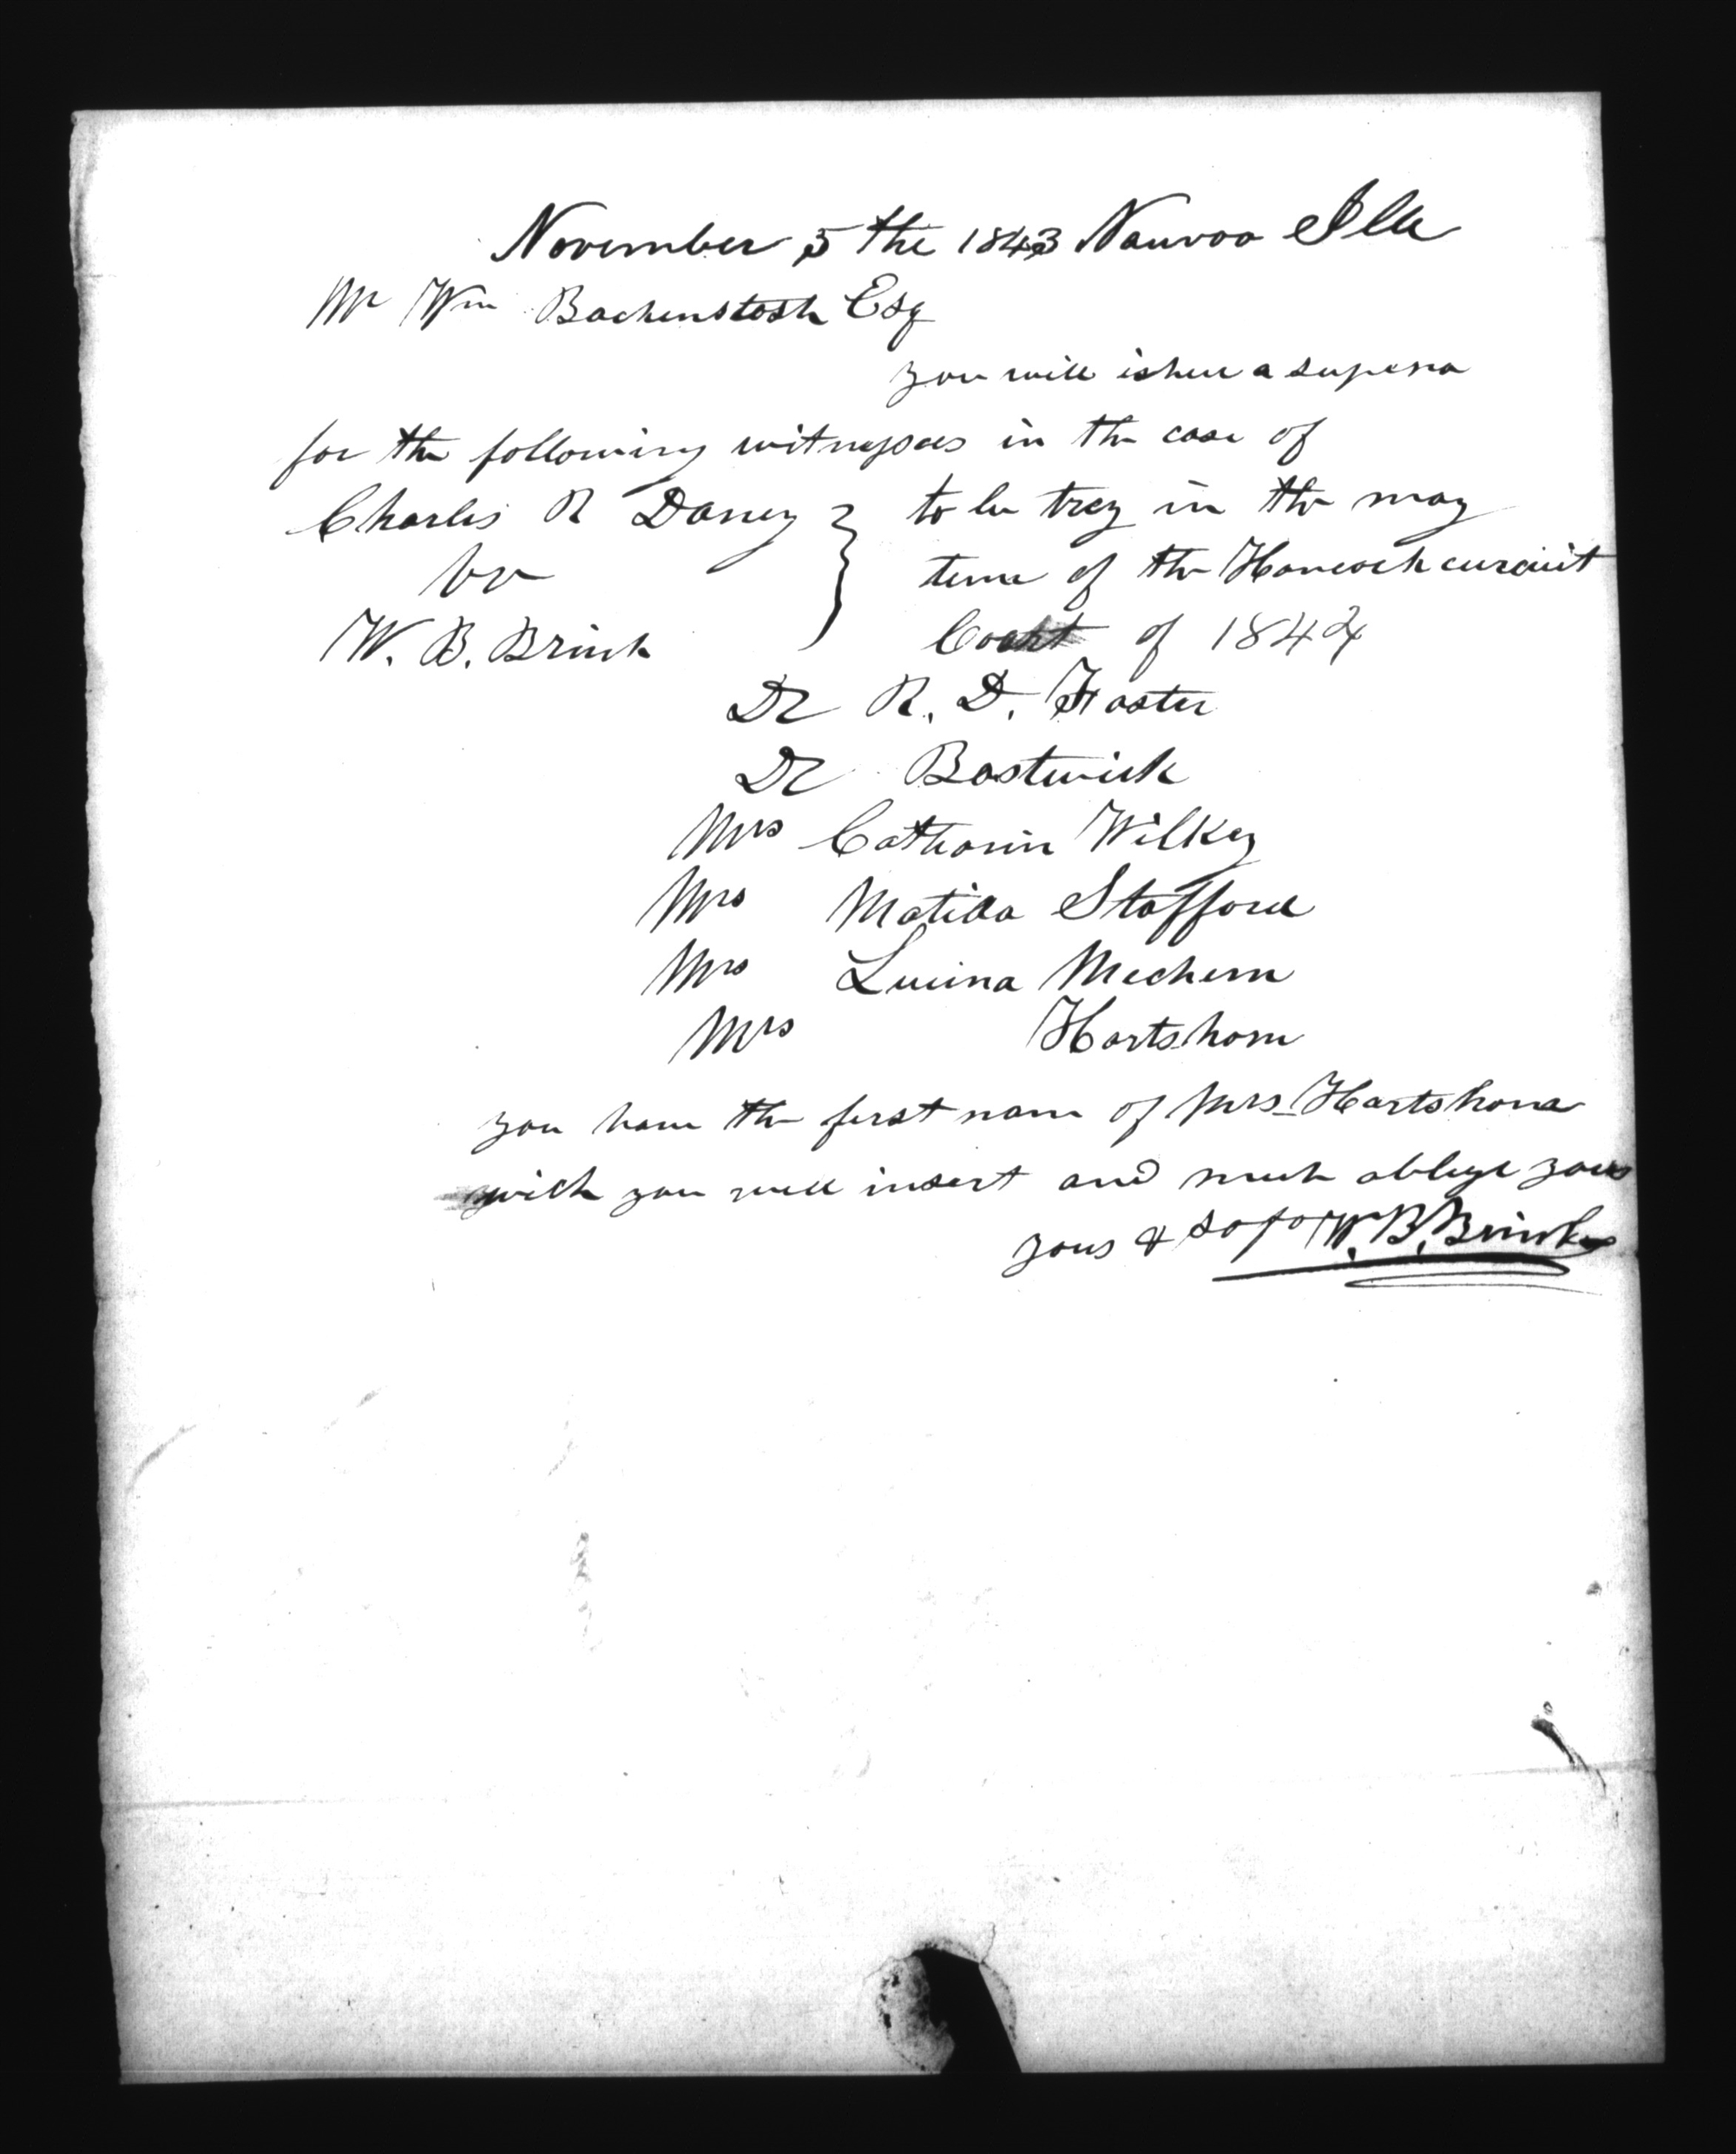 November 5 the 1843 Nauvoo Ills
Mr Wm Backenstosh Esq
you will ishue a supena
for the following witnesses in the case of
Charles R Daney } to be trey in the may
vs
term of the Hancock curcuit
W. B. Brink
Court of 1844
Dr R. D. Foster
Dr Bostwick
Mrs Catharin Wilkey
Mrs Matilda Stafford
Mrs Lucina Mechem
Mrs Hartshorn
you have the first name of Mrs Hartshorne
wich you will insert and much oblige yous
yous & so fo W. B. Brink